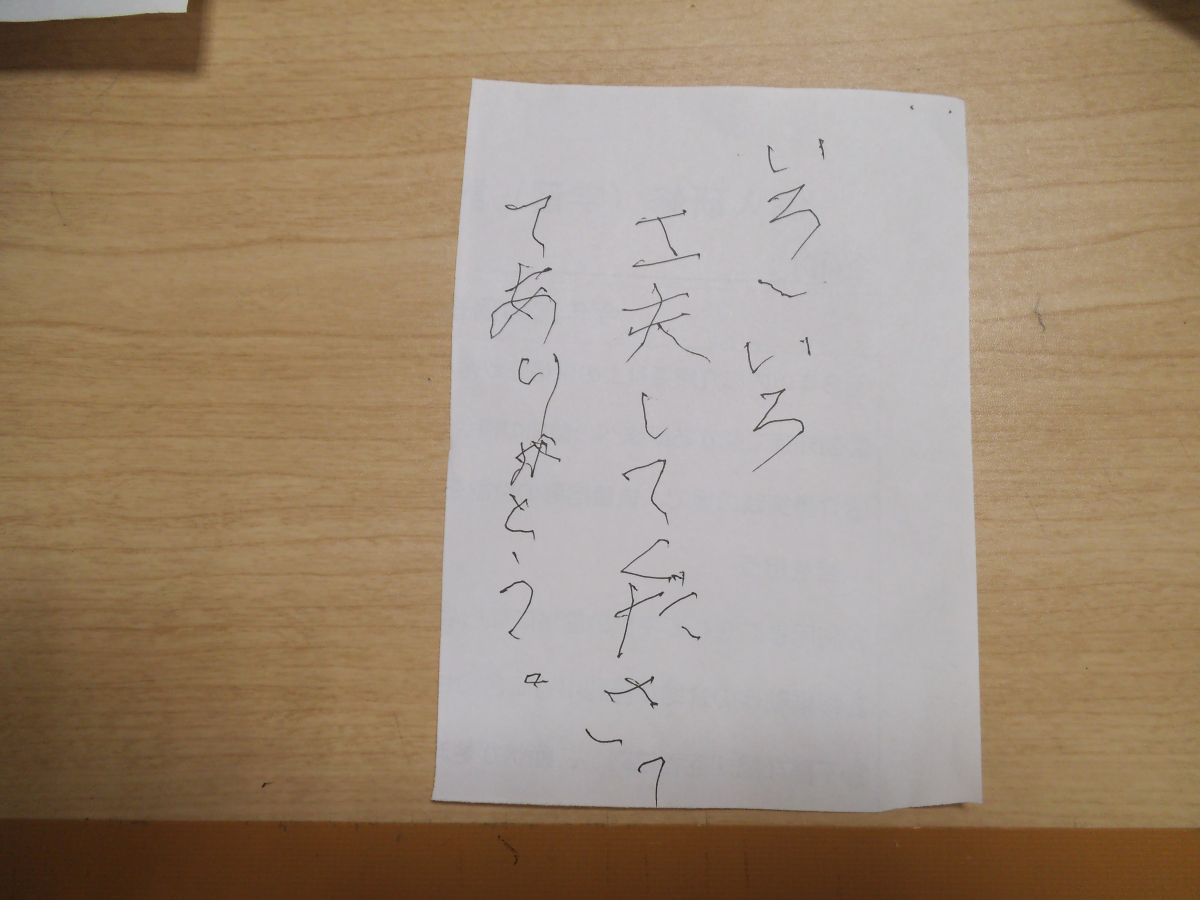 いろ〜いろ
工夫してくださっ
てありがとう。